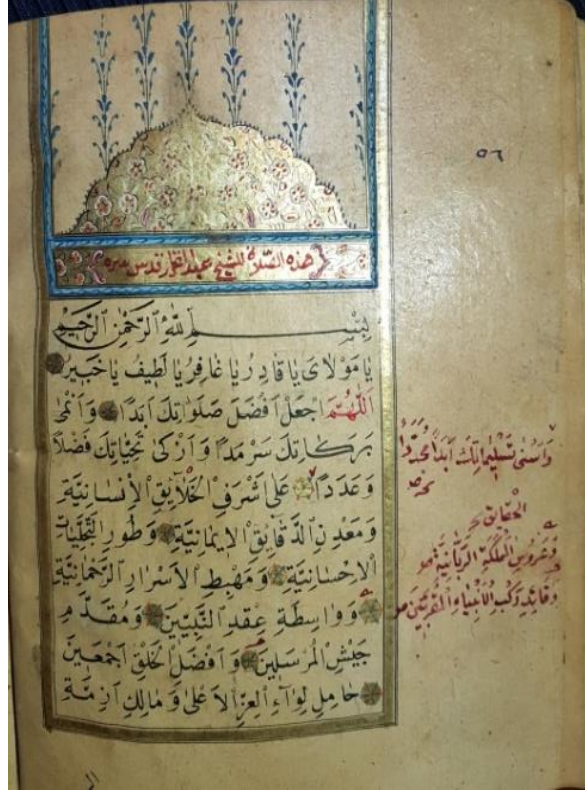 ٥٦
هذه الصلاة للشيخ عبد القادر قدس سره
بِسْمِ اللَّهِ الرَّحْمٰنِ الرَّحِيمِ
يَا مَوْلَاىَ يَا قَادِرُ يَا غَافِرُ يَا لَطِيفُ يَا خَبِيرُ
اَللّٰهُمَّ اجْعَلْ اَفْضَلَ صَلَوَاتِكَ اَبَدًا وَاَنْمٰى
بَرَكَاتِكَ سَرْمَدًا وَاَزْكٰى تَحِيَّاتِكَ فَضْلًا
وَعَدَدًا عَلٰى اَشْرَفِ الْخَلَايِقِ الْاِنْسَانِيَّةِ
وَمَعْدِنِ الدَّقَايِقِ الْاِيمَانِيَّةِ وَطُورِ التَّجَلِّيَاتِ
الْاِحْسَانِيَّةِ وَمَهْبِطِ الْاَسْرَارِ الرَّحْمَانِيَّةِ
وَوَاسِطَةِ عِقْدِ النَّبِيِّينَ وَمُقَدَّمِ
جَيْشِ الْمُرْسَلِينَ وَاَفْضَلِ الْخَلْقِ اَجْمَعِينَ
حَامِلِ لِوَآءِ الْعِزِّ الْاَعْلٰى وَمَالِكِ اَزِمَّةِ
وَاَسْنٰى تَسْلِيمَاتِكَ اَبَدًا مُجَدَّدًا
صح
الحقايق
وَعَرُوسِ الْمَمْلَكَةِ الرَّبَّانِيَّةِ
وَقَائِدِ رَكْبِ الْاَنْبِيَاءِ الْمُقَرَّبِينَ